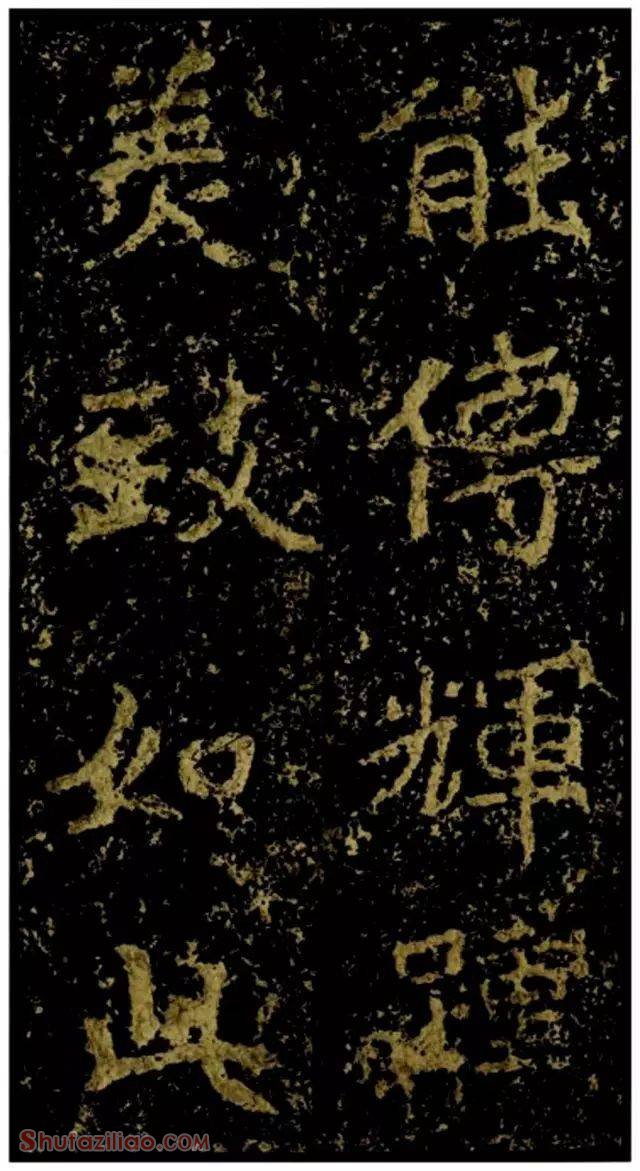 能傳輝踵
美致如此
Shufaziliao.com